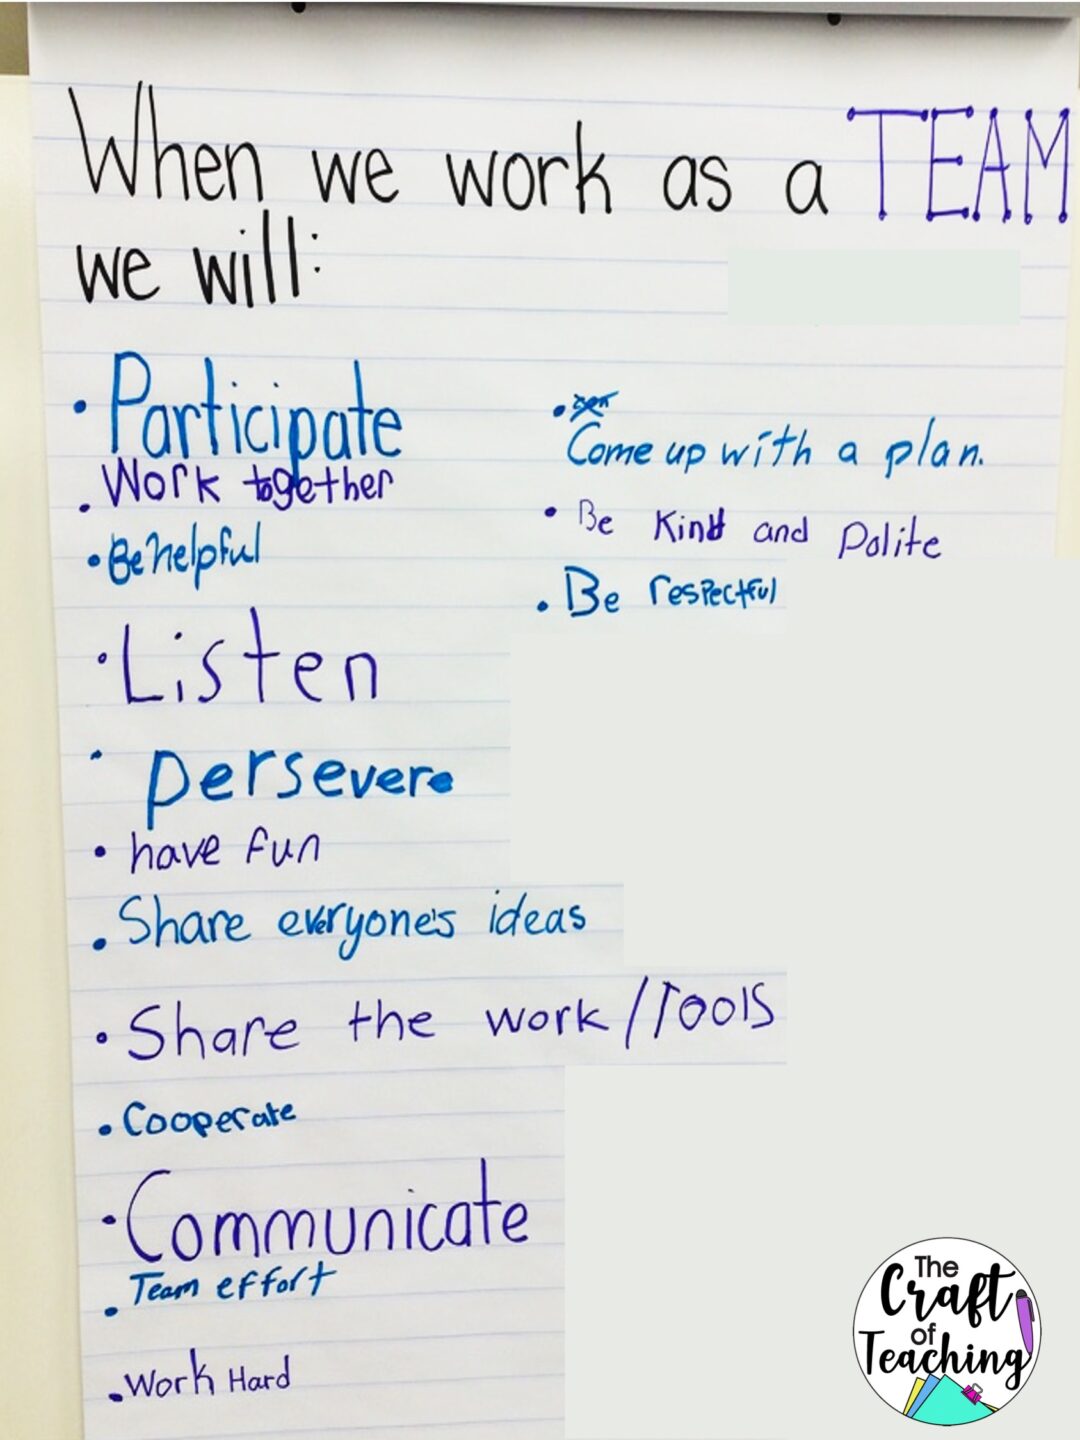 When we work as a TEAM
we will:
• Participate
• Work together
• Be helpful
• Listen
• persevere
• have fun
• Share everyone's ideas
• Share the work/Tools
• Cooperate
• Communicate
• Team effort
• Work Hard
•
Come up with a plan.
• Be Kind and Polite
• Be respectful
The
Craft
of
Teaching